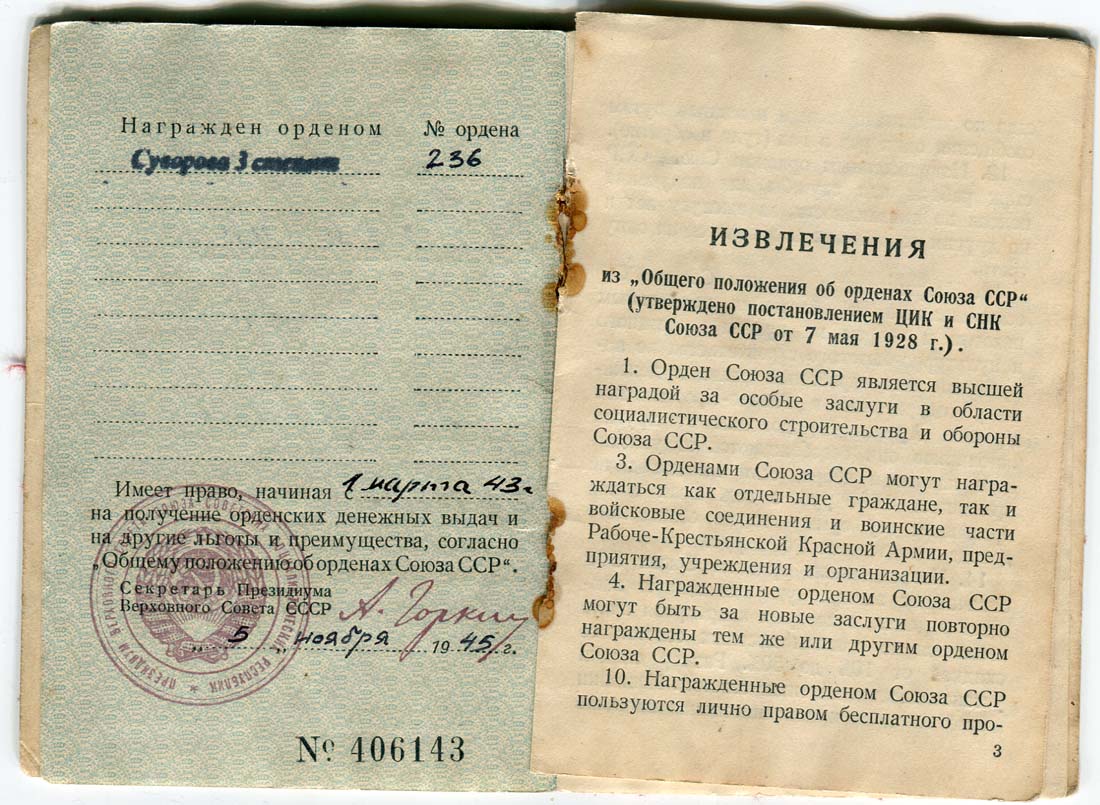 Награжден орденом № ордена
Суворова 3 степени 236
Имеет право, начиная 1 марта 43 г
на получение орденских денежных выдач и
на другие льготы и преимущества, согласно
„Общему положению об орденах Союза ССР“.
Секретарь Президиума
Верховного Совета СССР А. Горкин
„ 5 „ ноября 1945 г.
№ 406143
ИЗВЛЕЧЕНИЯ
из „Общего положения об орденах Союза ССР“
(утверждено постановлением ЦИК и СНК
Союза ССР от 7 мая 1928 г.).
1. Орден Союза ССР является высшей
наградой за особые заслуги в области
социалистического строительства и обороны
Союза ССР.
3. Орденами Союза ССР могут награ-
ждаться как отдельные граждане, так и
войсковые соединения и воинские части
Рабоче-Крестьянской Красной Армии, пред-
приятия, учреждения и организации.
4. Награжденные орденом Союза ССР
могут быть за новые заслуги повторно
награждены тем же или другим орденом
Союза ССР.
10. Награжденные орденом Союза ССР
пользуются лично правом бесплатного про-
3